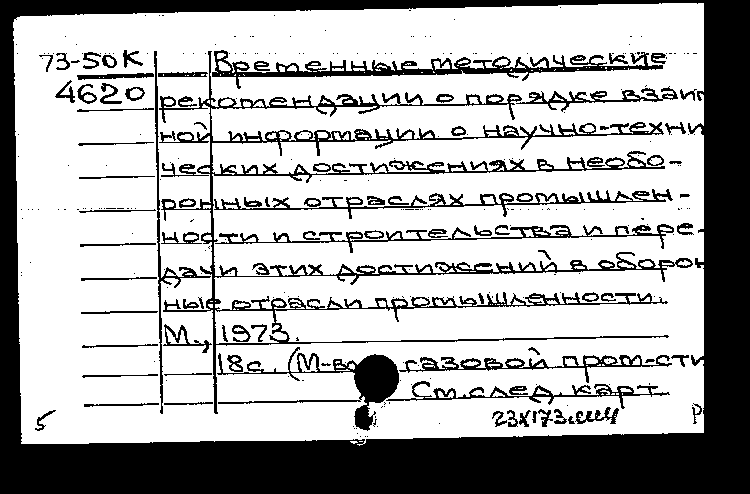 73-50К Временные методические
4620 рекомендации о порядке взаим
ной информации о научно-техни
ческих достижениях в необо-
ронных отраслях промышлен-
ности и строительства и пере-
дачи этих достижений в оборон
ные отрасли промышленности.
М., 1973.
18с. (М-во газовой пром-сти
См. след. карт
5 23X173